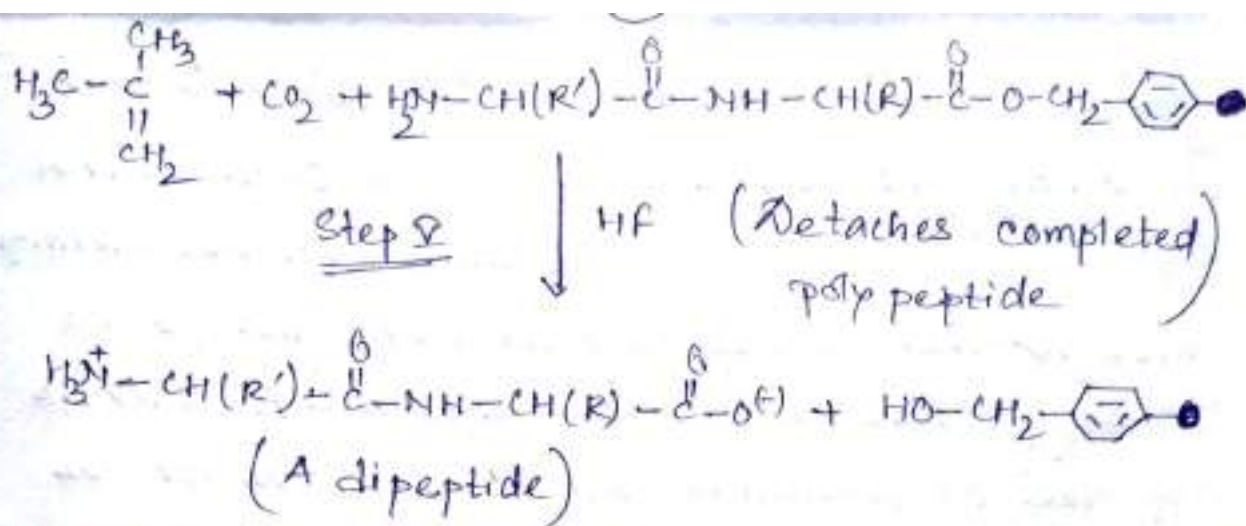 CH3
H3C-C + CO2 + H2N-CH(R')-C-NH-CH(R)-C-O-CH2-
O O
CH2
Step V HF (Detaches completed
polypeptide)
O O
H3N+-CH(R')-C-NH-CH(R)-C-O(-) + HO-CH2-
(A dipeptide)